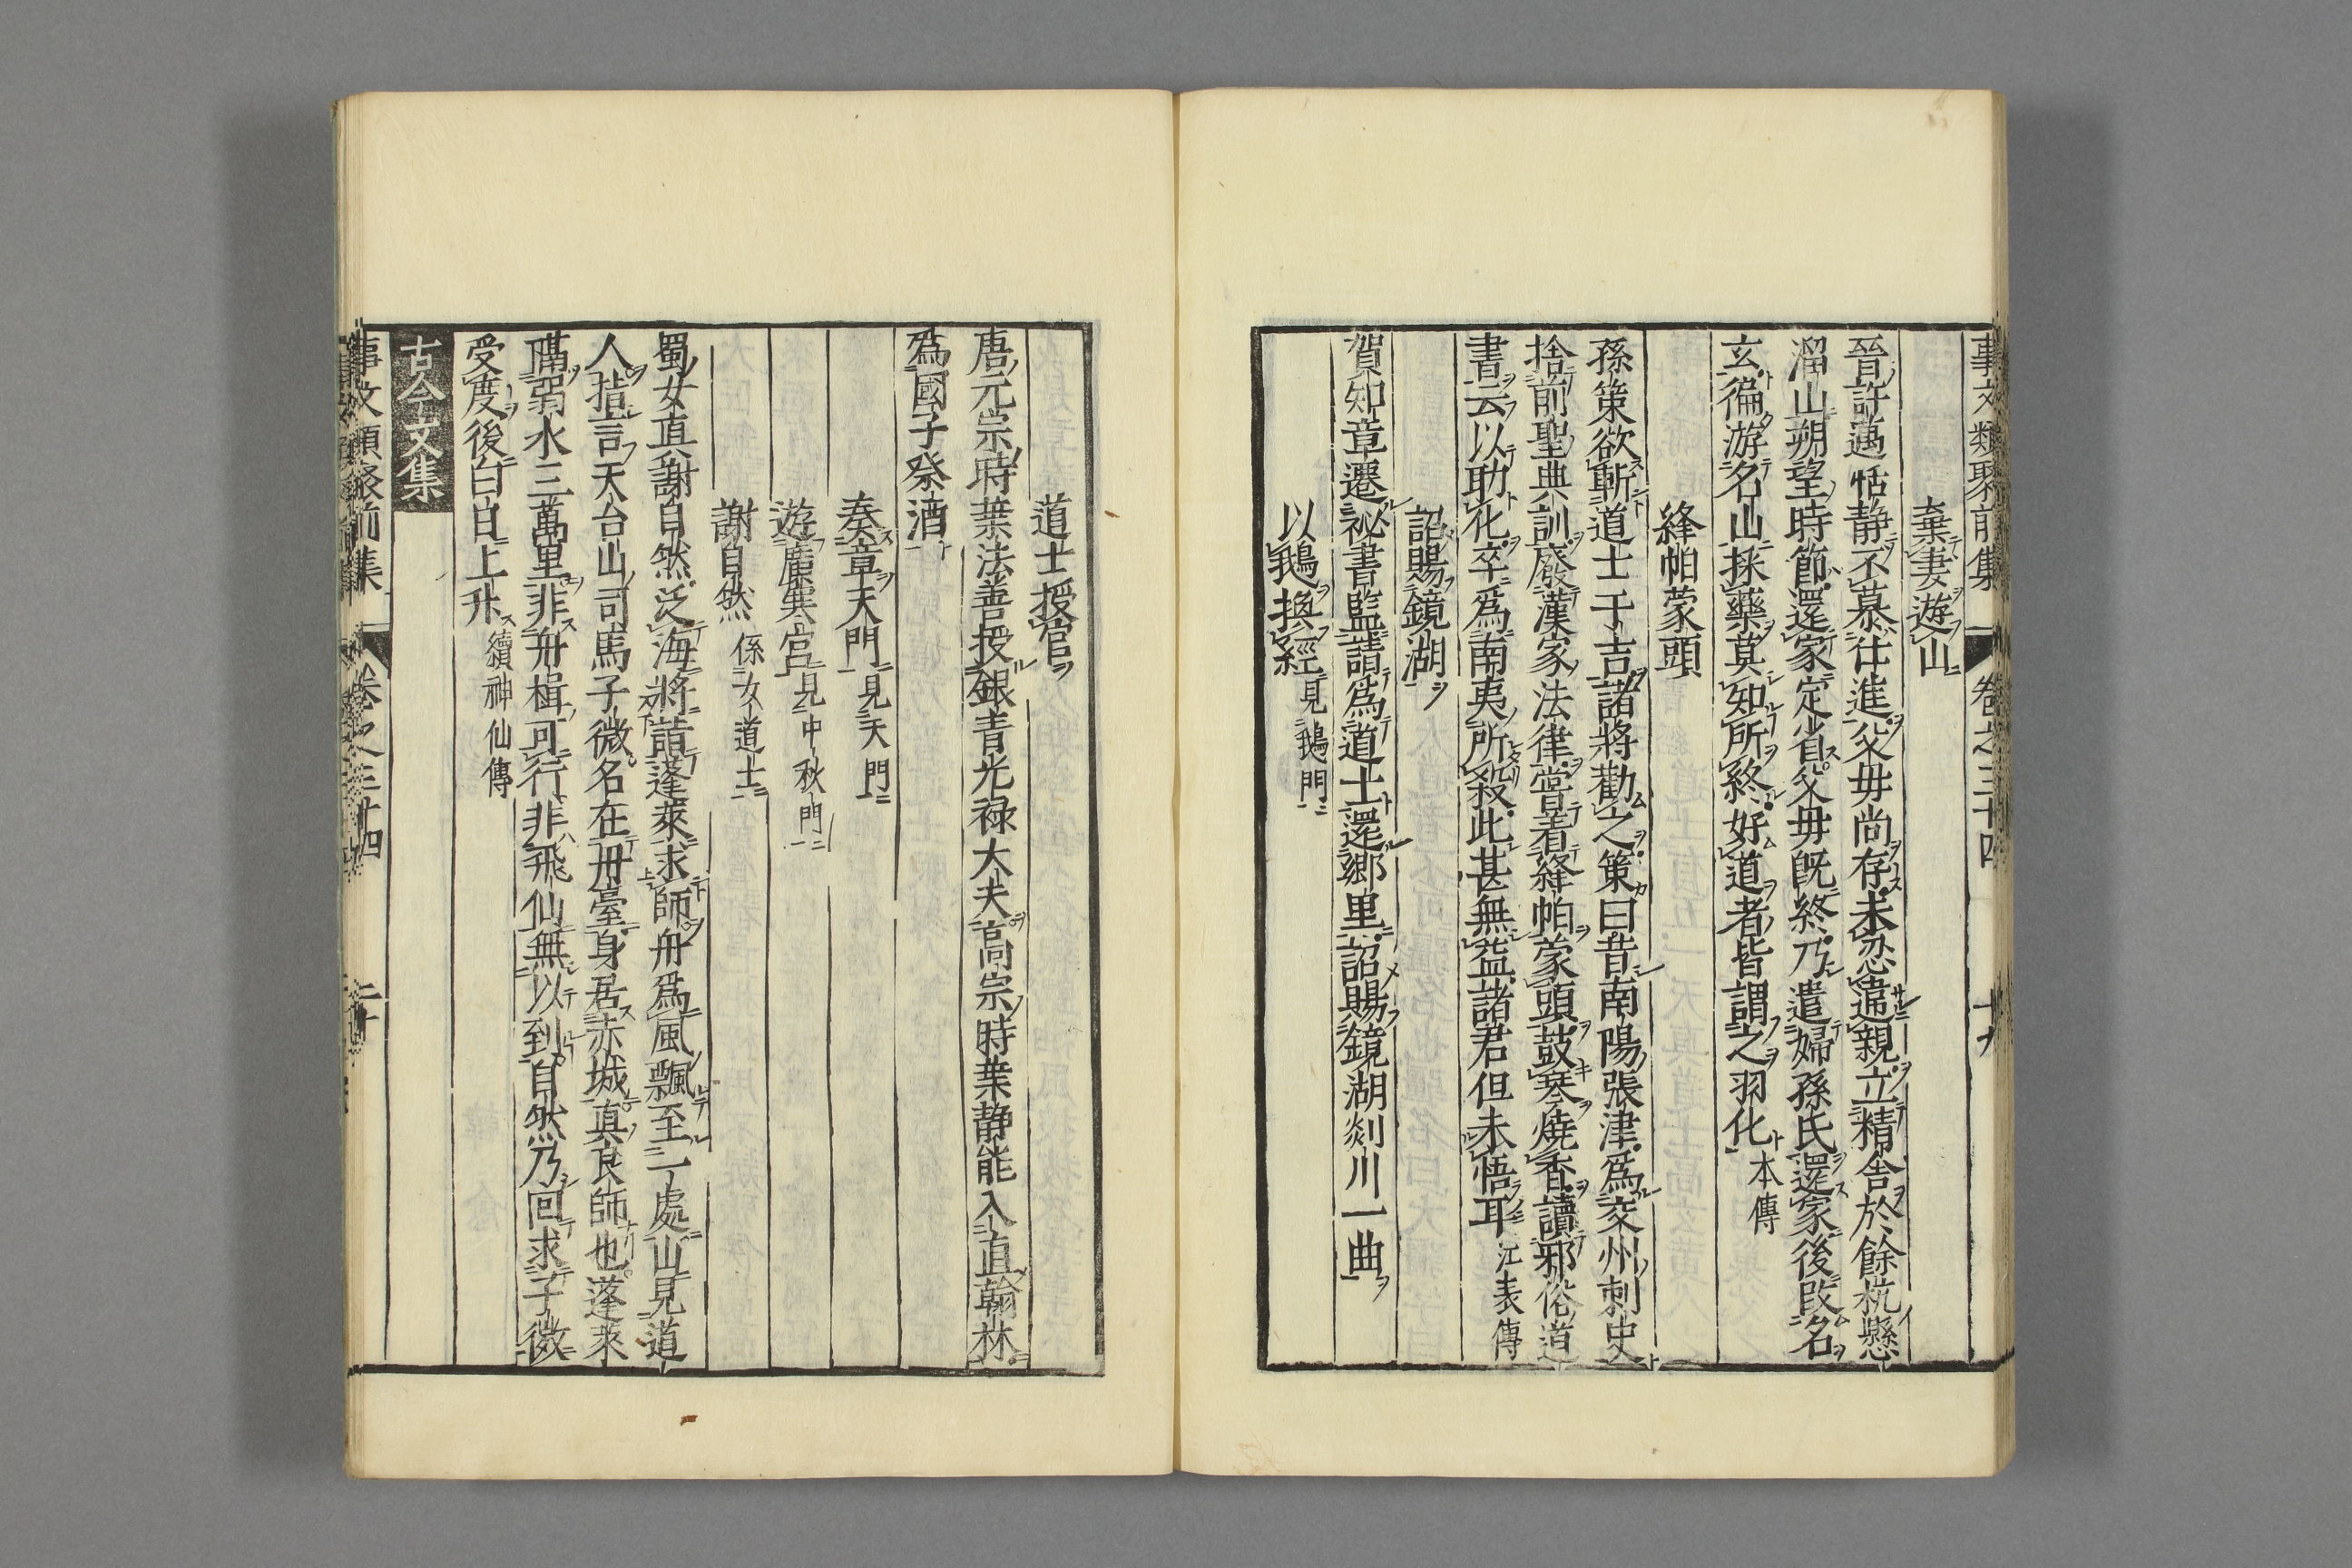 事文類聚前集 卷之三十四 十九
棄妻遊山
晉許邁恬静不慕仕進父母尚存未忍違親立精舍於餘杭懸
溜山朔望時節還家定省父母既終乃遣婦孫氏還家後改名
玄徧游名山採藥莫知所終好道者皆謂之羽化 本傳
絳帕蒙頭
孫策欲斬道士于吉諸將勸之策曰昔南陽張津爲交州刺史
捨前聖典訓廢漢家法律嘗著絳帕蒙頭鼓琴燒香讀邪俗道
書云以助化卒爲南夷所殺此甚無益諸君但未悟耳 江表傳
詔賜鏡湖
賀知章遷祕書監請爲道士還鄉里詔賜鏡湖剡川一曲
以鵝換經 見鵝門
道士授官
唐元宗時葉法善授銀青光禄大夫高宗時葉静能入直翰林
爲國子祭酒
奏章天門 見天門
遊廣寒宫 見中秋門
謝自然 係女道士
蜀女真謝自然泛海將詣蓬萊求師舟爲風飄至一處山見道
人指言天台山司馬子微名在丹臺身居赤城真良師也蓬萊
隔弱水三萬里非舟楫可行非飛仙無以到自然乃回求子微
受度後白日上升 續神仙傳
古今文集
事文類聚前集 卷之三十四 二十